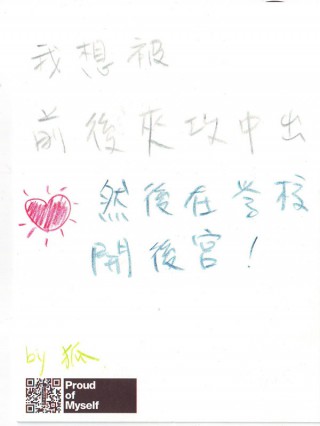 我想被
前後夾攻中出
然後在学校
開後宮！
by 狐
Proud
of
Myself